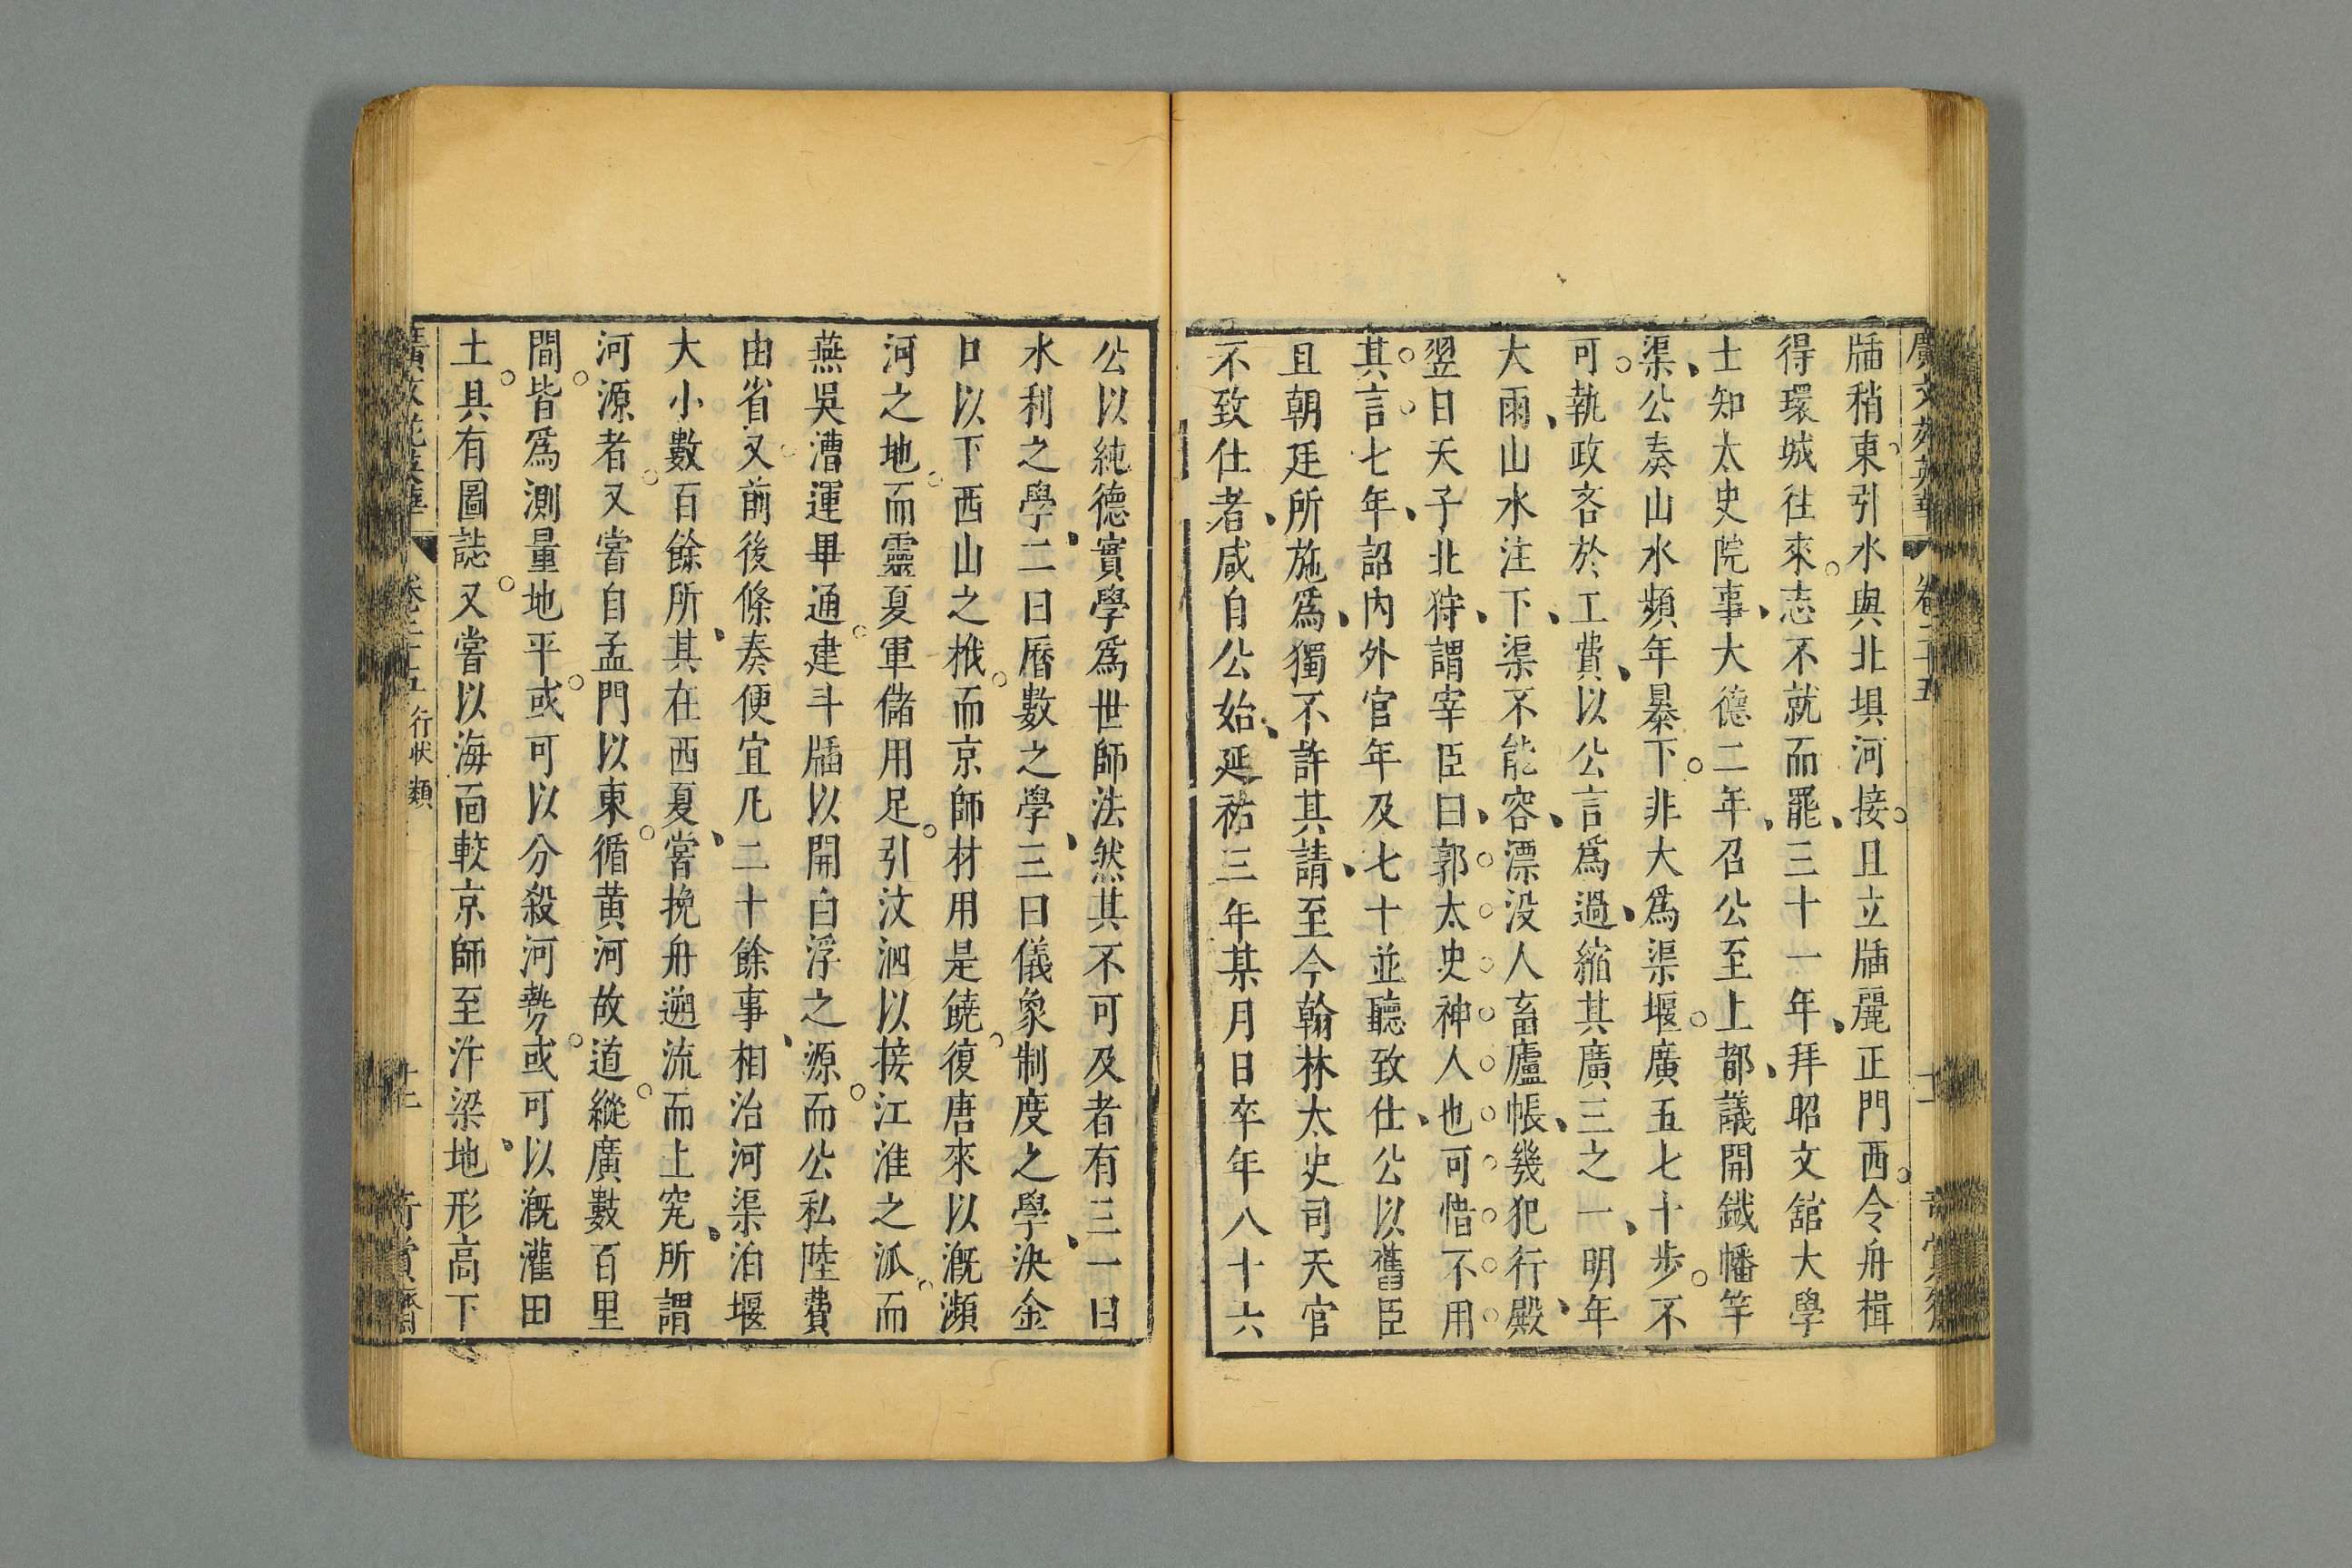 廣文苑英華 卷二十五
牐稍東引水與北埧河接且立牐麗正門西令舟楫
得環城往來志不就而罷三十一年拜昭文舘大學
士知太史院事大德二年召公至上都議開鐵幡竿
渠公奏山水頻年暴下非大爲渠堰廣五七十步不
可執政吝於工費以公言爲過縮其廣三之一明年
大雨山水注下渠不能容漂没人畜廬帳幾犯行殿
翌日天子北狩謂宰臣曰郭太史神人也可惜不用
其言七年詔内外官年及七十並聽致仕公以舊臣
且朝廷所施爲獨不許其請至今翰林太史司天官
不致仕者咸自公始延祐三年某月日卒年八十六
公以純德實學爲世師法然其不可及者有三一曰
水利之學二曰曆數之學三曰儀象制度之學決金
口以下西山之栰而京師材用是饒復唐來以漑瀕
河之地而靈夏軍儲用足引汶泗以接江淮之泒而
燕吳漕運畢通建斗牐以開白浮之源而公私陸費
由省又前後條奏便宜凡二十餘事相治河渠泊堰
大小數百餘所其在西夏嘗挽舟遡流而上究所謂
河源者又嘗自孟門以東循黄河故道縱廣數百里
間皆爲測量地平或可以分殺河勢或可以漑灌田
土具有圖誌又嘗以海面較京師至汴梁地形高下
廣文苑英華 卷二十五 行狀類 十二